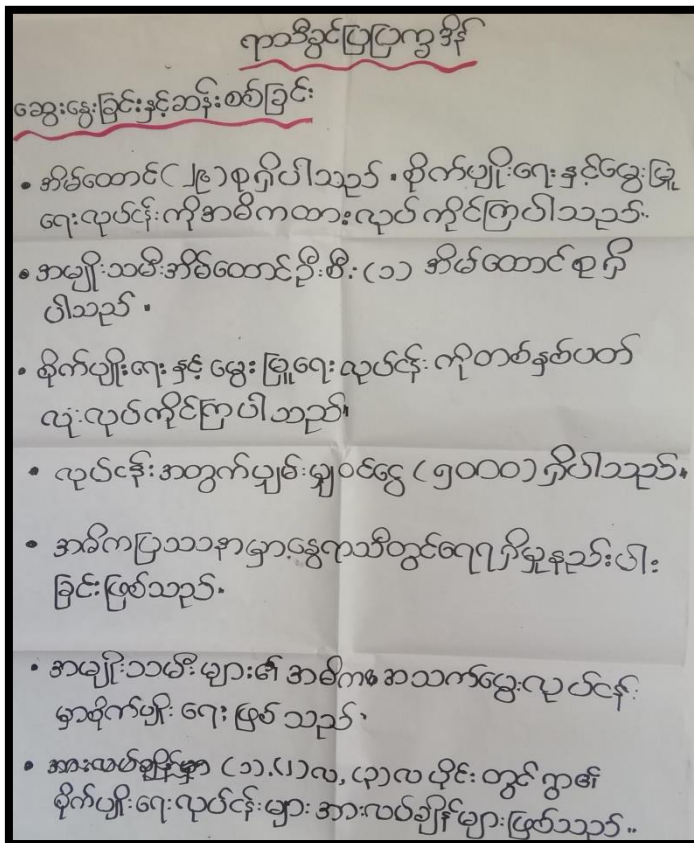 ရာသီခွင်ပြပြက္ခဒိန်
ဆွေးနွေးခြင်းနှင့်ဆန်းစစ်ခြင်း
• အိမ်ထောင်(၂၉)စုရှိပါသည်။ စိုက်ပျိုးရေးနှင့်မွေးမြူ
ရေးလုပ်ငန်းကိုအဓိကထားလုပ်ကိုင်ကြပါသည်။
• အမျိုးသမီးအိမ်ထောင်ဦးစီး(၁) အိမ်ထောင်စုရှိ
ပါသည်။
• စိုက်ပျိုးရေးနှင့်မွေးမြူရေးလုပ်ငန်းကိုတစ်နှစ်ပတ်
လုံးလုပ်ကိုင်ကြပါသည်။
• လုပ်ငန်းအတွက်ပျှမ်းမျှဝင်ငွေ(၅၀၀၀)ရှိပါသည်။
• အဓိကပြဿနာမှာနွေရာသီတွင်ရေရရှိမှုနည်းပါး
ခြင်းဖြစ်သည်။
• အမျိုးသမီးများ၏အဓိက အသက်မွေးလုပ်ငန်း
မှာစိုက်ပျိုးရေးဖြစ်သည်။
• အားလပ်ချိန်မှာ (၁).(၂)လ,(၃)လပိုင်းတွင်ရွာ၏
စိုက်ပျိုးရေးလုပ်ငန်းများအားလပ်ချိန်များဖြစ်သည်။